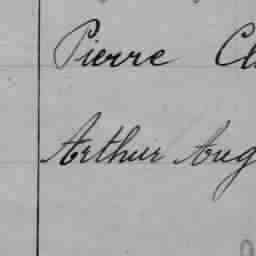 Pierre Cl
Arthur Aug